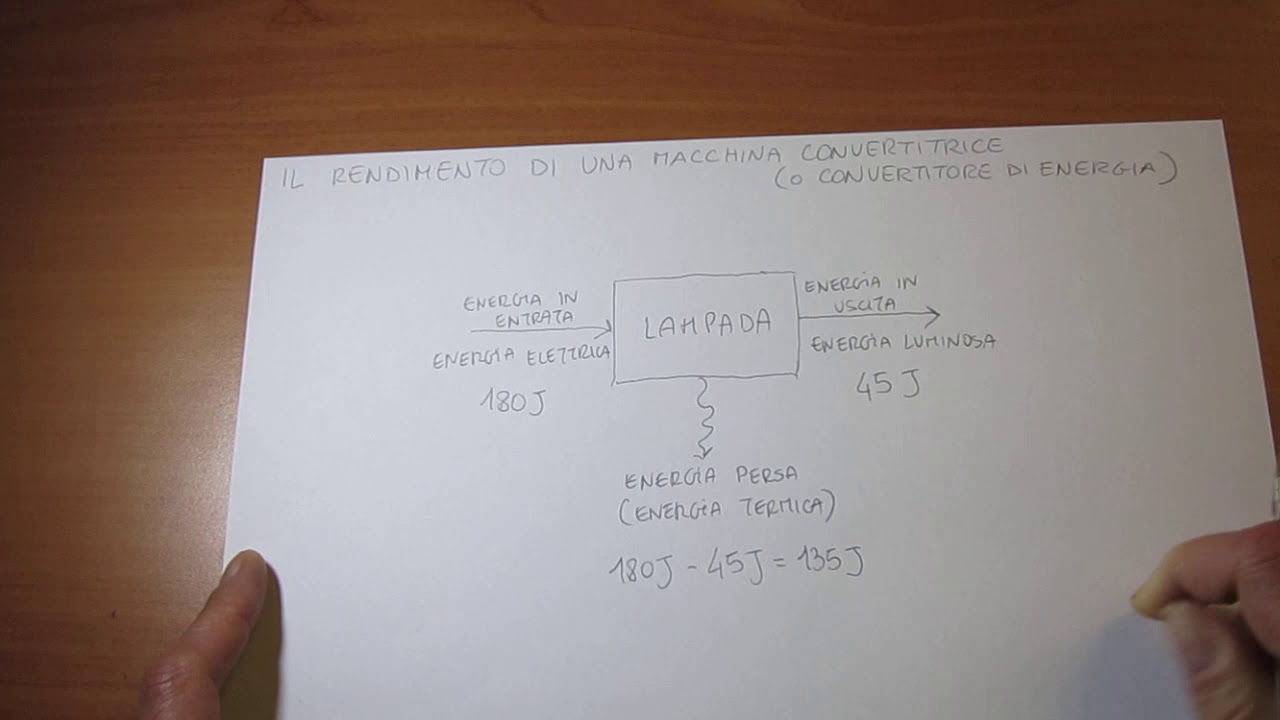 IL RENDIMENTO DI UNA MACCHINA CONVERTITRICE
(O CONVERTITORE DI ENERGIA)
ENERGIA IN
ENTRATA
ENERGIA ELETTRICA
180J
LAMPADA
ENERGIA IN
USCITA
ENERGIA LUMINOSA
45J
ENERGIA PERSA
(ENERGIA TERMICA)
180J - 45J = 135J